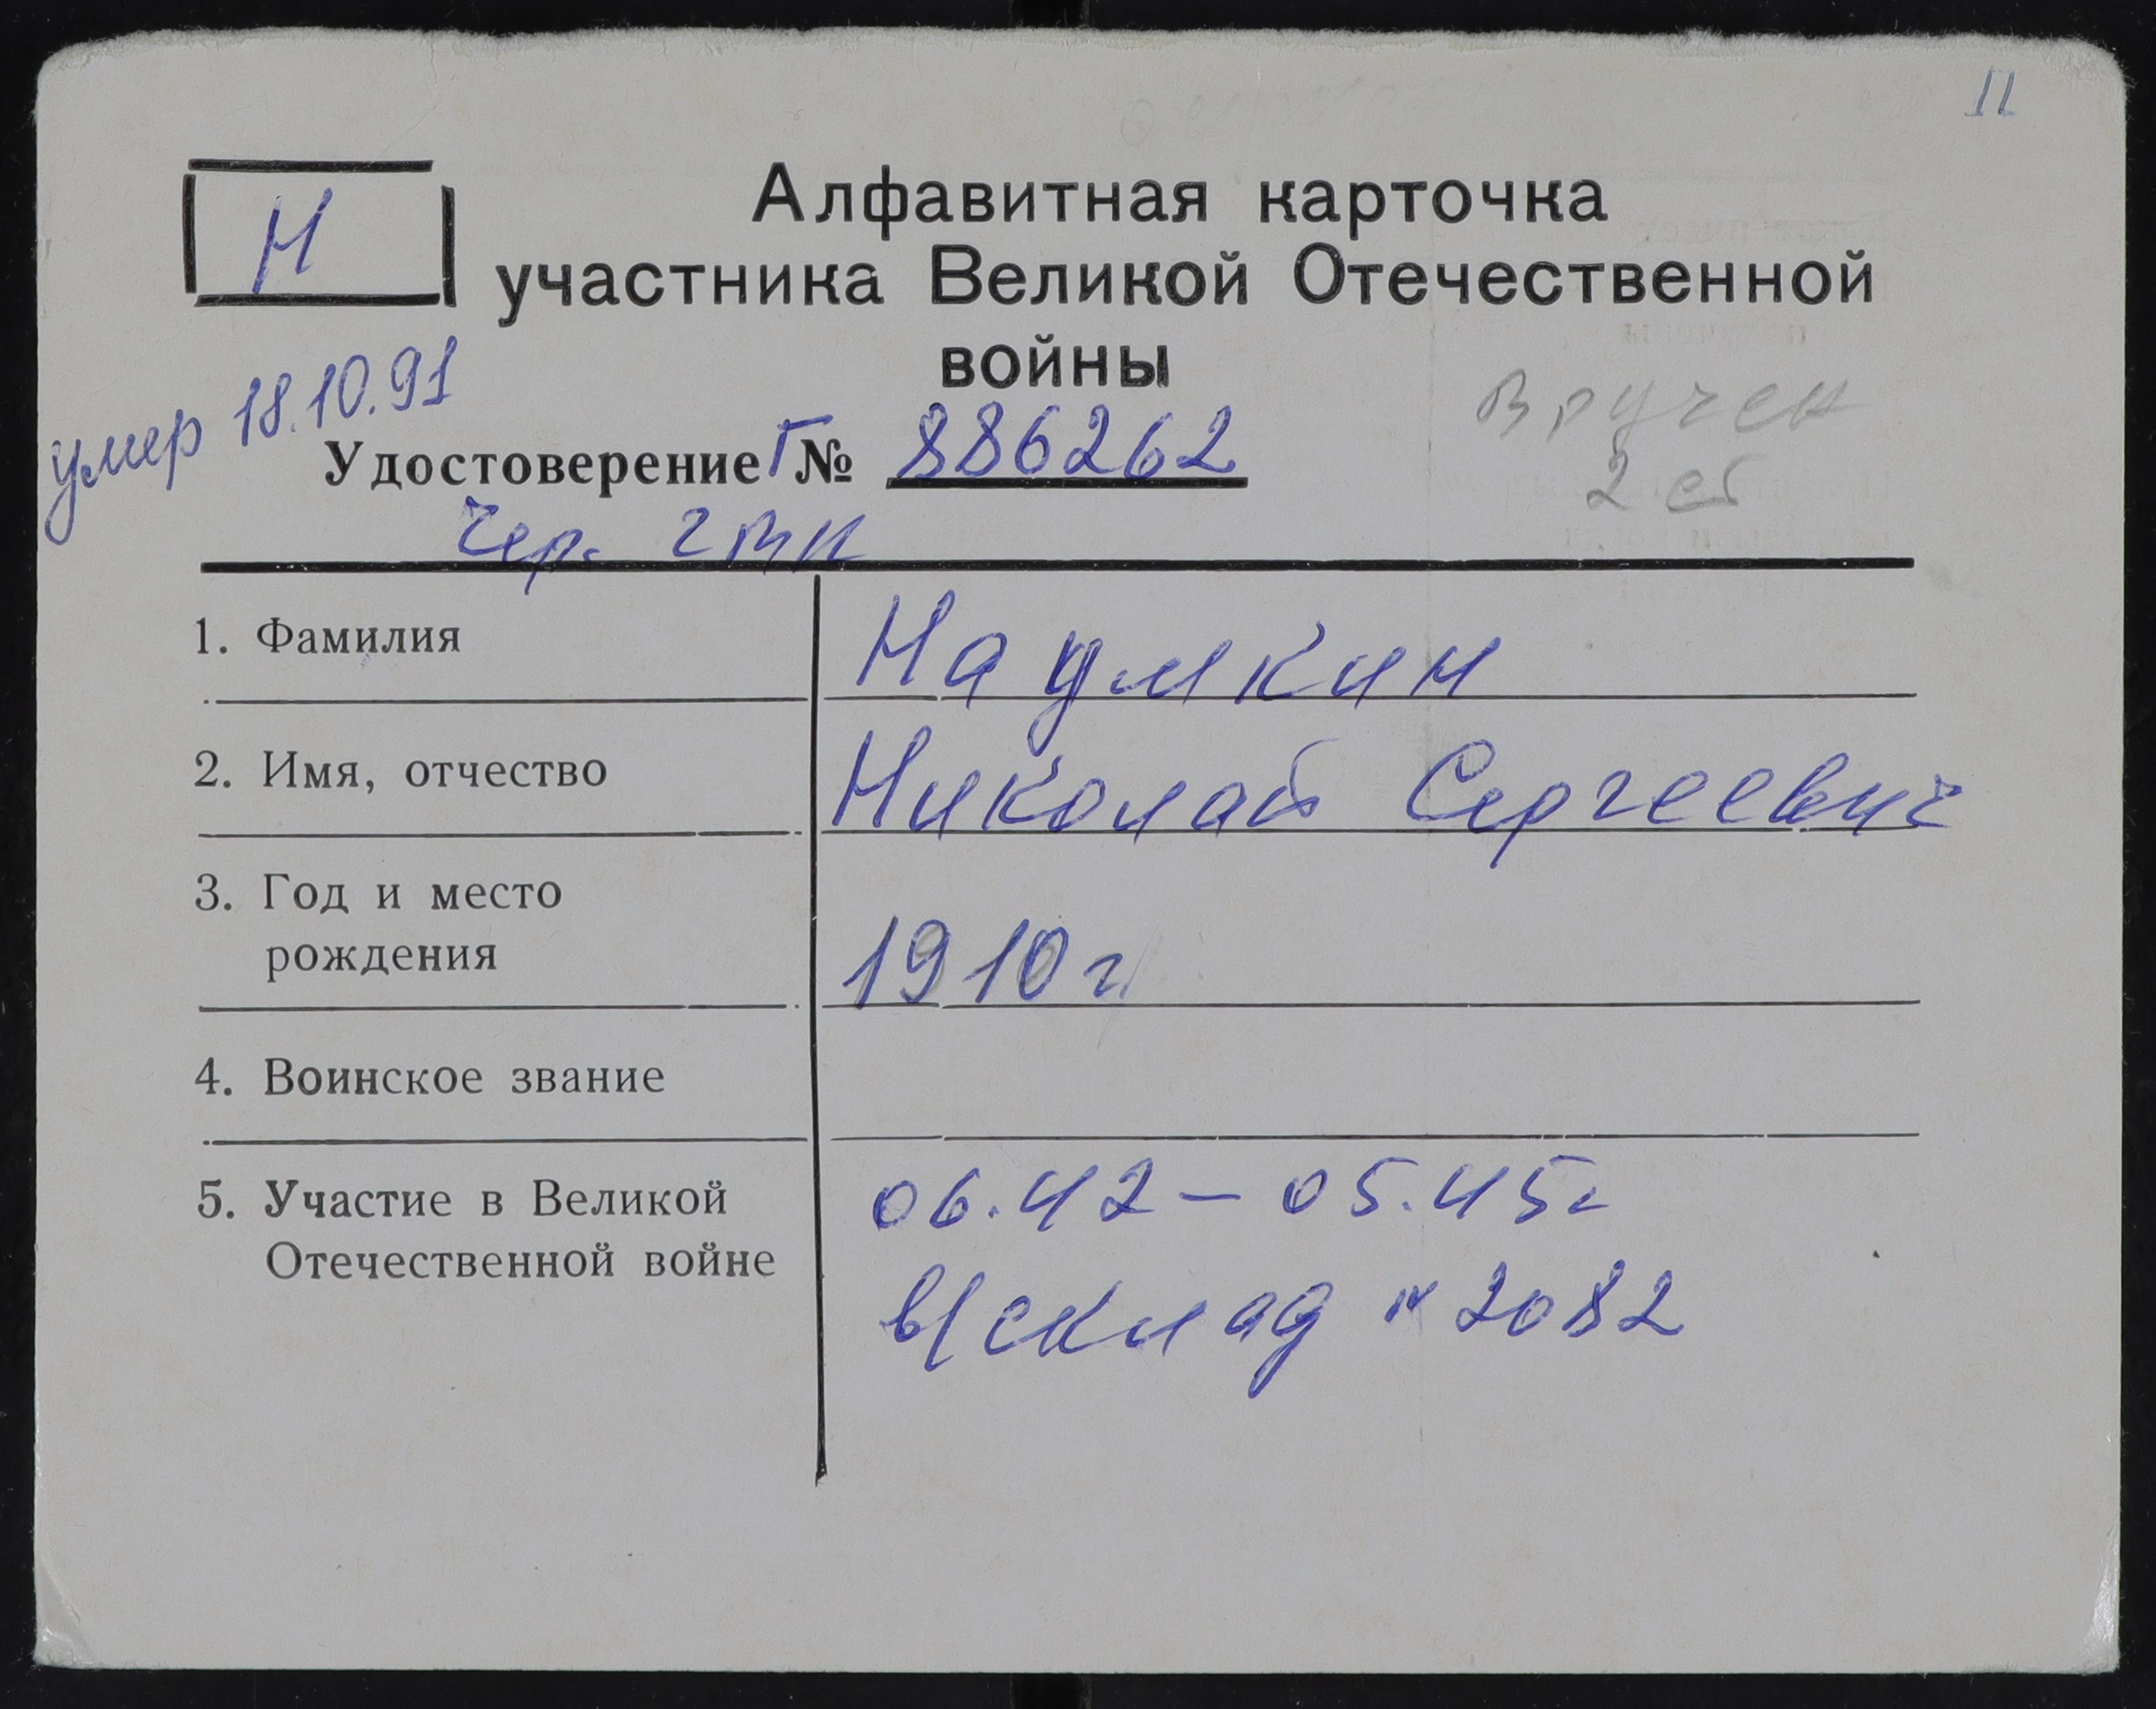 11
Н
Алфавитная карточка
участника Великой Отечественной
войны
умер 18.10.91
Удостоверение Г № 886262
Вручен
2 ст
Чер. ГВК
1. Фамилия Наумкин
2. Имя, отчество Николай Сергеевич
3. Год и место
рождения 1910 г
4. Воинское звание
5. Участие в Великой 06.42 – 05.45г
Отечественной войне
в/склад № 2082